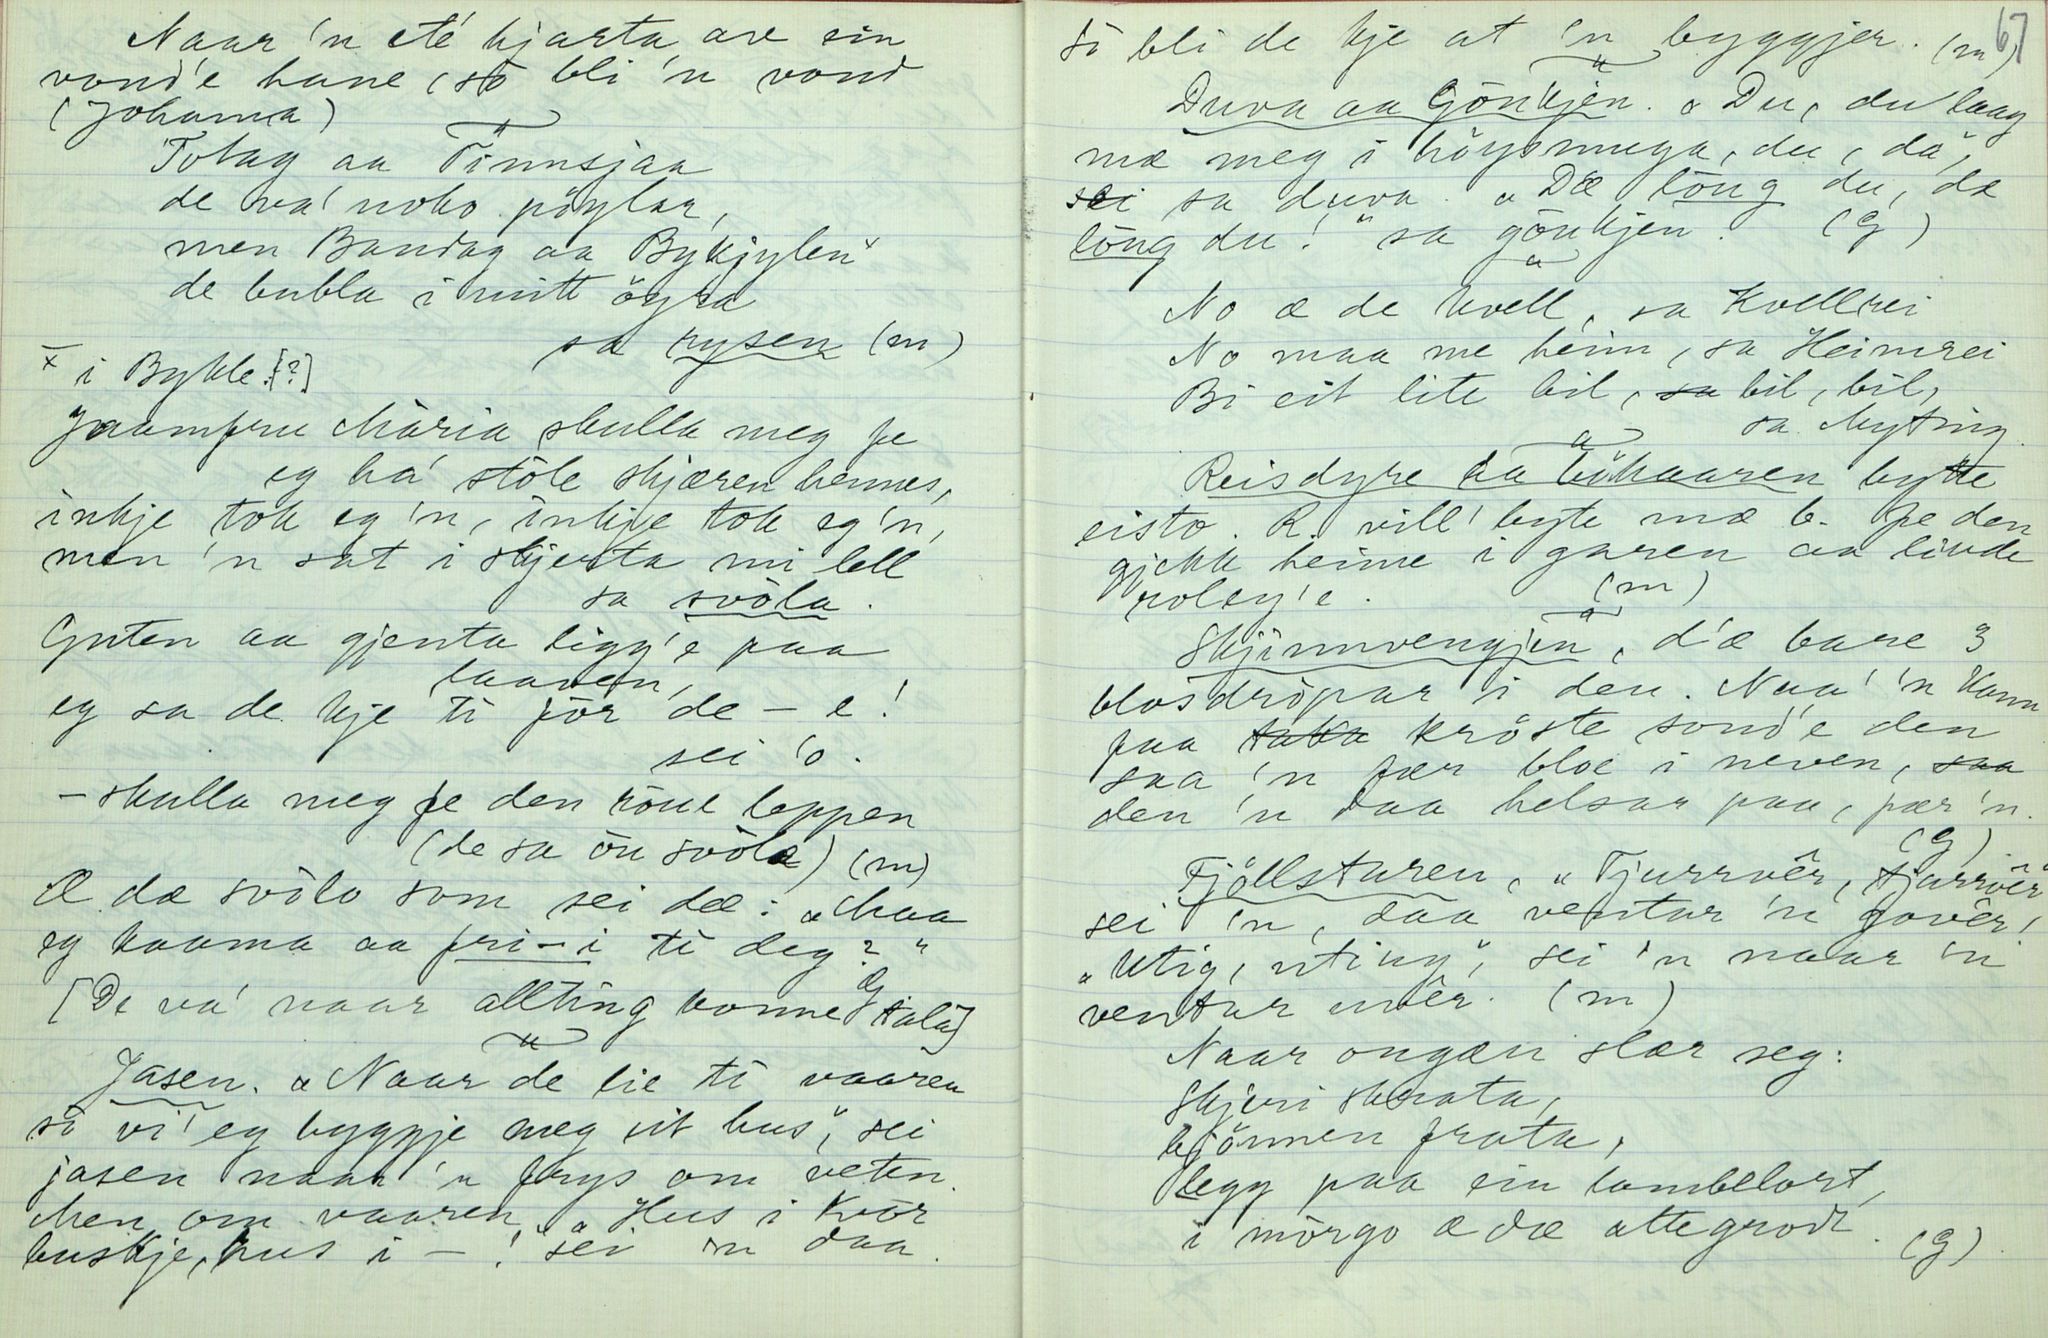 Naar 'n eté hjarta av ein
vond'e hane, so bli 'n vond
(Johanna)
Tobag aa Tinnsjaa
de va' noko pöylar,
men Bandag aa Bykjylen x
de bubla i mitt öyra
sa rysen (m)
x i Bykle. [?]
Jaamfru Maria skulla meg fe
eg ha' stöle skjæren hennes,
inkje tok eg 'n, inkje tok eg 'n,
men 'n sat i skjorta mi lell
sa svòla.
Guten aa gjenta ligg'e paa
laaven,
eg sa de kje ti för de - e!
sei 'o.
- skulla meg fe den röue leppen
(de sa òu svòla) (m)
Æ dæ svòlo som sei dæ: "Maa
eg kaama aa fri-i ti deg?"
[De va' naar allting konne tala] G
Jasen. "Naar de lie ti vaaren
so vi' eg byggje meg eit hus", sei
jasen naar 'n frys om veten.
Men om vaaren, "Hus i kvor
buskje, hus i - !" sei 'n daa.
67
So bli de kje at 'n byggjer. (m)
Duva aa Gönkjen. "Du, du laag
mæ meg i höysmuga, du, då",
sei sa duva. "Dæ lòng du, dæ
lòng du!" sa gönkjen. (G)
No æ de kvell, sa Kvellrei
No maa me heim, sa Heimrei
Bi eit lite bil, sa bil, bil,
sa Myting.
Reisdyre aa bòkaaren bytte
eisto. R. vill' byte mæ b. fe den
gjekk heime i garen aa livde
roleg'e. (m)
Skjinnvengjen, d'æ bare 3
blosdropar i den. Naa' 'n kann
faa taka kröste sond'e den
saa 'n fær bloe i neven, saa
den 'n daa helsar paa, fær 'n.
(G)
Fjöllsturen, "Tjurrvêr, tjurrvêr"
sei 'n, daa ventar 'n govêr,
"Utig, uting", sei 'n naar 'n
ventar uvêr. (m)
Naar ongæn slær seg:
Skjeri skrata,
bjönnen frata,
legg paa ein lambelort,
i mörgo æ dæ attegrodt. (G)